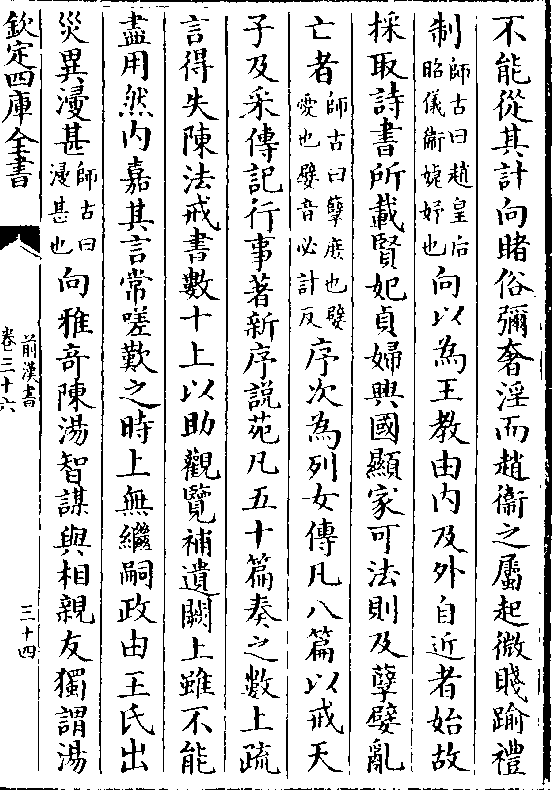 不能從其計向睹俗彌奢淫而趙衞之屬起微賤踰禮
制師古曰趙皇后昭儀衞婕妤也向以為王教由内及外自近者始故
採取詩書所載賢妃貞婦興國顯家可法則及孽嬖亂
亡者師古曰孽庶也嬖愛也嬖音必計反序次為列女傳凡八篇以戒天
子及采傳記行事著新序說苑凡五十篇奏之數上疏
言得失陳法戒書數十上以助觀覽補遺闕上雖不能
盡用然内嘉其言常嗟歎之時上無繼嗣政由王氏出
災異漫甚師古曰漫甚也向雅竒陳湯智謀與相親友獨謂湯
欽定四庫全書
前漢書
卷三十六
三十四